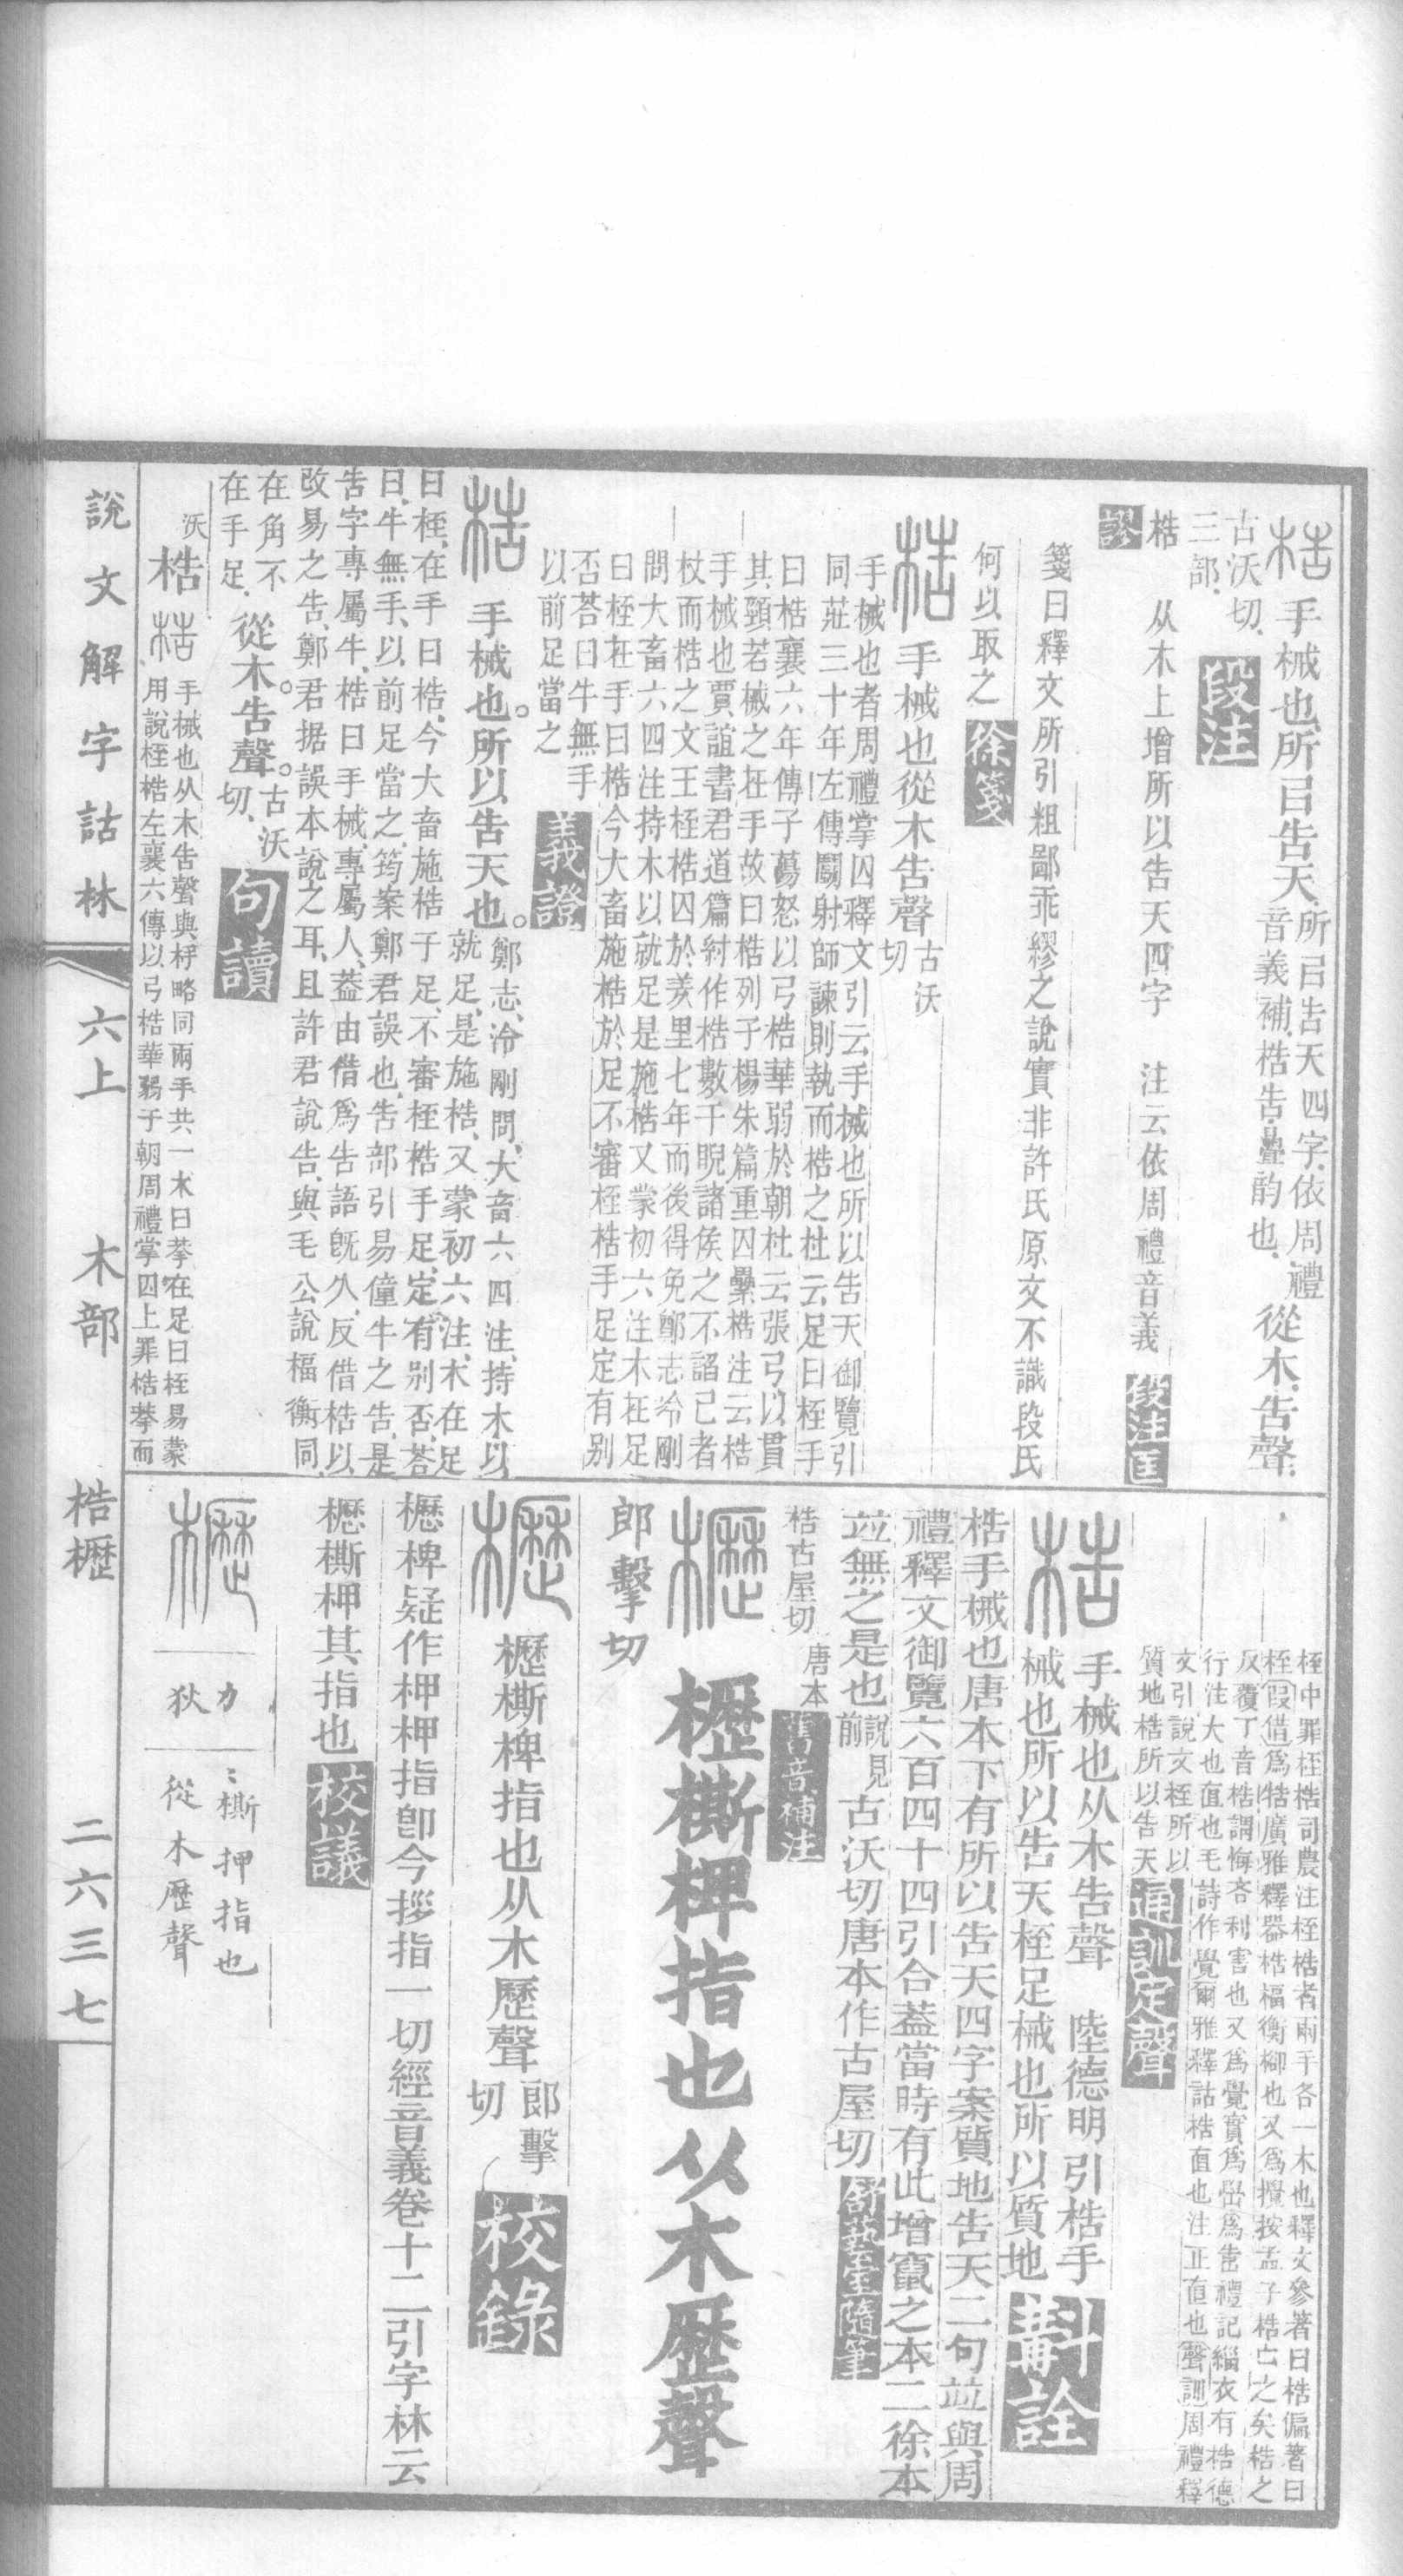 梏 手械也,所㠯告天.所㠯告天四字,依周禮
音義補.梏告曡韵也.從木,告聲.
古沃切,
三部.
段注
梏 从木上增所以告天四字 注云依周禮音義 段注匡
謬
箋曰釋文所引粗鄙乖繆之說實非許氏原文不識段氏
何以取之 徐箋
梏 手械也從木告聲古沃切
手械也者周禮掌囚釋文引云手械也所以告天御覽引
同莊三十年左傳鬬射師諫則執而梏之杜云足曰桎手
曰梏襄六年傳子蕩怒以弓梏華弱於朝杜云張弓以貫
其頸若械之在手故曰梏列子楊朱篇重囚纍梏注云梏
手械也賈誼書君道篇紂作梏數千睨諸侯之不諂己者
杖而梏之文王桎梏囚於羑里七年而後得免鄭志泠剛
問大畜六四注持木以就足是施梏又蒙初六注木在足
曰桎在手曰梏今大畜施梏於足不審桎梏手足定有别
否荅曰牛無手
以前足當之
義證
梏 手械也。所以告天也。鄭志,泠剛問,大畜六四注,持木以
就足,是施梏,又蒙初六注,木在足
曰桎,在手曰梏,今大畜施梏于足,不審桎梏手足,定有别否,荅
曰,牛無手,以前足當之,筠案鄭君誤也,告部引易僮牛之告,是
告字專屬牛,梏曰手械,專屬人,蓋由借爲告語旣久,反借梏以
改易之告,鄭君据誤本說之耳,且許君說告,與毛公說楅衡同,
在角不
在手足.從木。告聲。古沃切、
句讀
沃梏 梏 手械也从木告聲與杽略同兩手共一木曰拲在足曰桎易蒙
用說桎梏左襄六傳以弓梏華弱于朝周禮掌囚上罪梏拲而
桎中罪桎梏司農注桎梏者兩手各一木也釋文參著曰梏偏著曰
桎叚借爲牿廣雅釋器梏楅衡柳也又爲攪按孟子梏亡之矣梏之
反覆丁音梏謂悔吝利害也又爲覺實爲嚳爲告禮記緇衣有梏德
行注大也直也毛詩作覺爾雅釋詁梏直也注正直也聲訓周禮釋
文引說文桎所以
質地梏所以告天
通訓定聲
梏 手械也从木告聲 陸德明引梏手
械也所以告天桎足械也所以質地 斠詮
梏手械也唐本下有所以告天四字案質地告天二句竝與周
禮釋文御覽六百四十四引合蓋當時有此增竄之本二徐本
竝無之是也說見前古沃切唐本作古屋切 舒藝室隨筆
梏古屋切 唐本 舊音補注
櫪 櫪㯕椑指也从木歷聲
郎擊切
櫪 櫪㯕椑指也从木歷聲郎擊切 校錄
櫪椑疑作柙柙指卽今拶指一切經音義卷十二引字林云
櫪㯕柙其指也 校議
櫪 力狄 ㄑ㯕押指也從木歷聲
說文解字詁林 六上 木部 梏櫪 二六三七